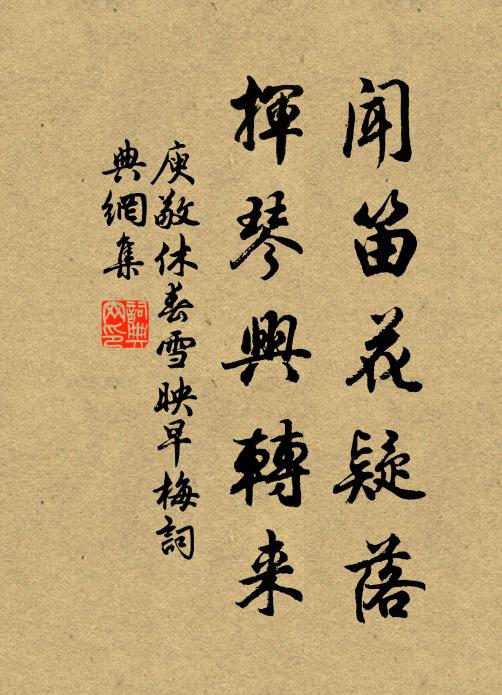 聞笛花疑落
揮琴興轉来
庾敬休春雪映早梅詞
典網集
詞典網印